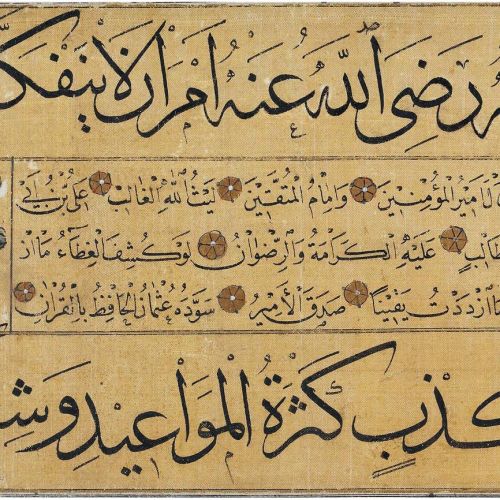 رَضِىَ اللهُ عَنْهُ اَمْرَانِ لَا يَنْفَكَّ
اَمِيرُ الْمُؤْمِنِينَ وَاِمَامُ الْمُتَّقِينَ لَيْثُ اللهِ الْغَالِبُ عَلِىُّ بْنُ اَبِى
طَالِبٍ عَلَيْهِ الْكَرَامَةُ وَالرِّضْوَانُ لَوْ كُشِفَ الْغِطَاءُ مَا از
ازْدَدْتُ يَقِينًا صَدَقَ الْاَمِيرُ سَوَّدَهُ عُثْمَانُ الْحَافِظُ بِالْقُرْاٰنِ
كَذِبٍ كَثْرَةُ الْمَوَاعِيدِ وَشِ